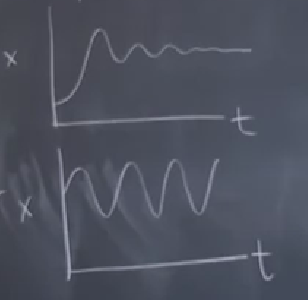 x
t
x
t